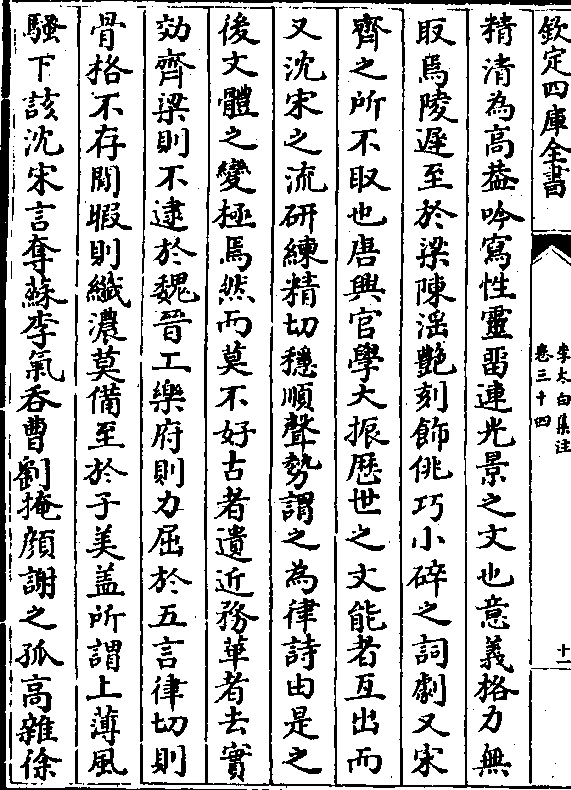 欽定四庫全書
李太白集注
卷三十四
十二
精清為高葢吟寫性靈畱連光景之文也意義格力無
取焉陵遲至於梁陳滛艷刻飾佻巧小碎之詞劇又宋
齊之所不取也唐興官學大振歴世之文能者互出而
又沈宋之流研練精切穩順聲勢謂之為律詩由是之
後文體之變極焉然而莫不好古者遺近務華者去實
効齊梁則不逮於魏晉工樂府則力屈於五言律切則
骨格不存閒暇則纖濃莫備至於子美盖所謂上薄風
騷下該沈宋言奪蘇李氣吞曹劉掩顔謝之孤高雜徐